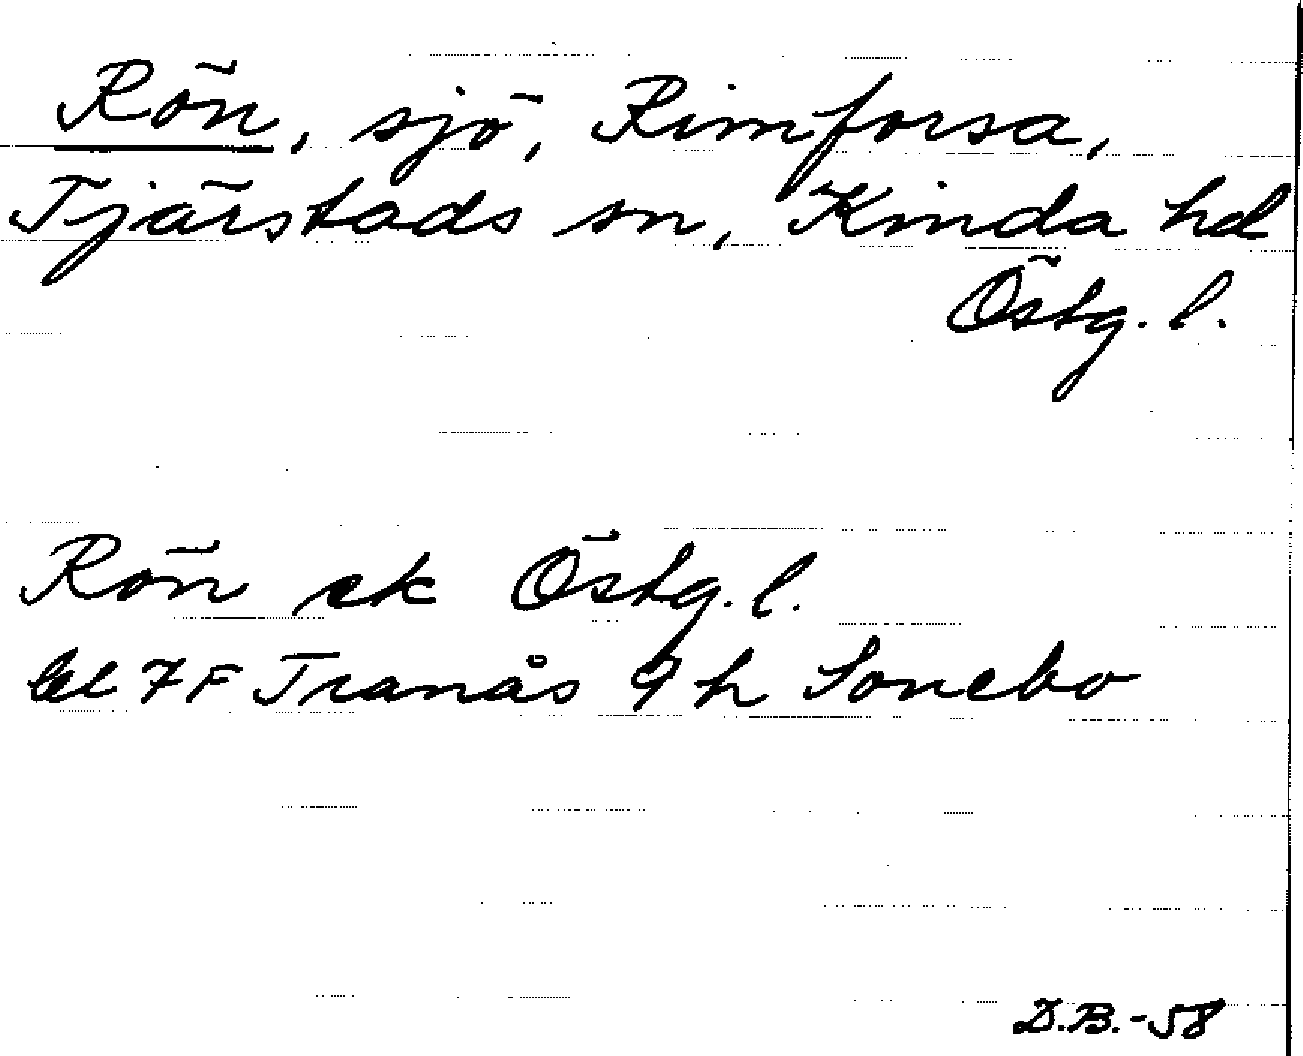 Rön, sjö, Rimforsa,
Tjärstads sn, Kinda hd
Östg. l.
Rön ek Östg. l.
bl 7F Tranås 9 h Sonebo
D.B.-58